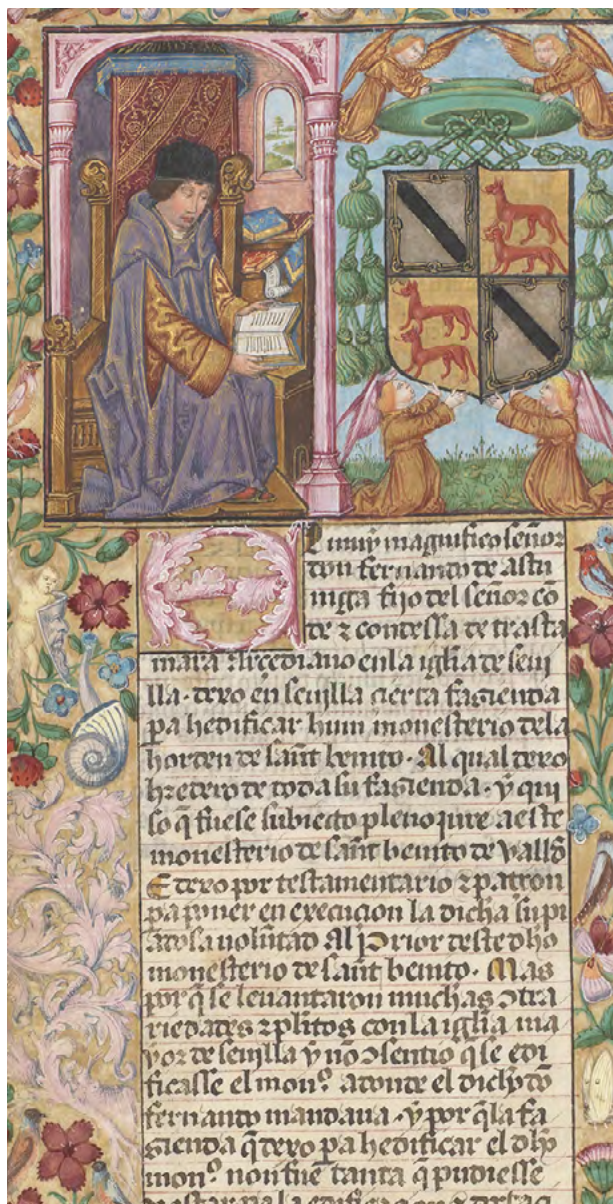 El muy magnifico señor
don fernando de astu
niga fijo del señor cō
de ⁊ contessa de trasta
mara Arcediano en la iglīa de sevi
lla. dexo en sevilla cierta fazienda
pa hedificar hun monesterio dela
horden de sant benito. Al qual dexo
heredero de toda su fazienda. y qui
so q̄ fuese subiecto pleno jure a este
monesterio de sant benito de vallid
E dexo por testamentario ⁊ patron
pa poner en execucion la dicha su pi
adosa voluntad Al Prior deste dho
monesterio de sant benito. Mas
por q̄ se levantaron muchas ↄtra
riedades ⁊ plitos con la iglīa ma
yor de sevilla y no ↄsentio q̄ se edi
ficasse el monº adonde el dicho dō
fernando mandava. y por q̄ la fa
zienda q̄ dexo pa hedificar el dho
monº non fue tanta q̄ pudiesse